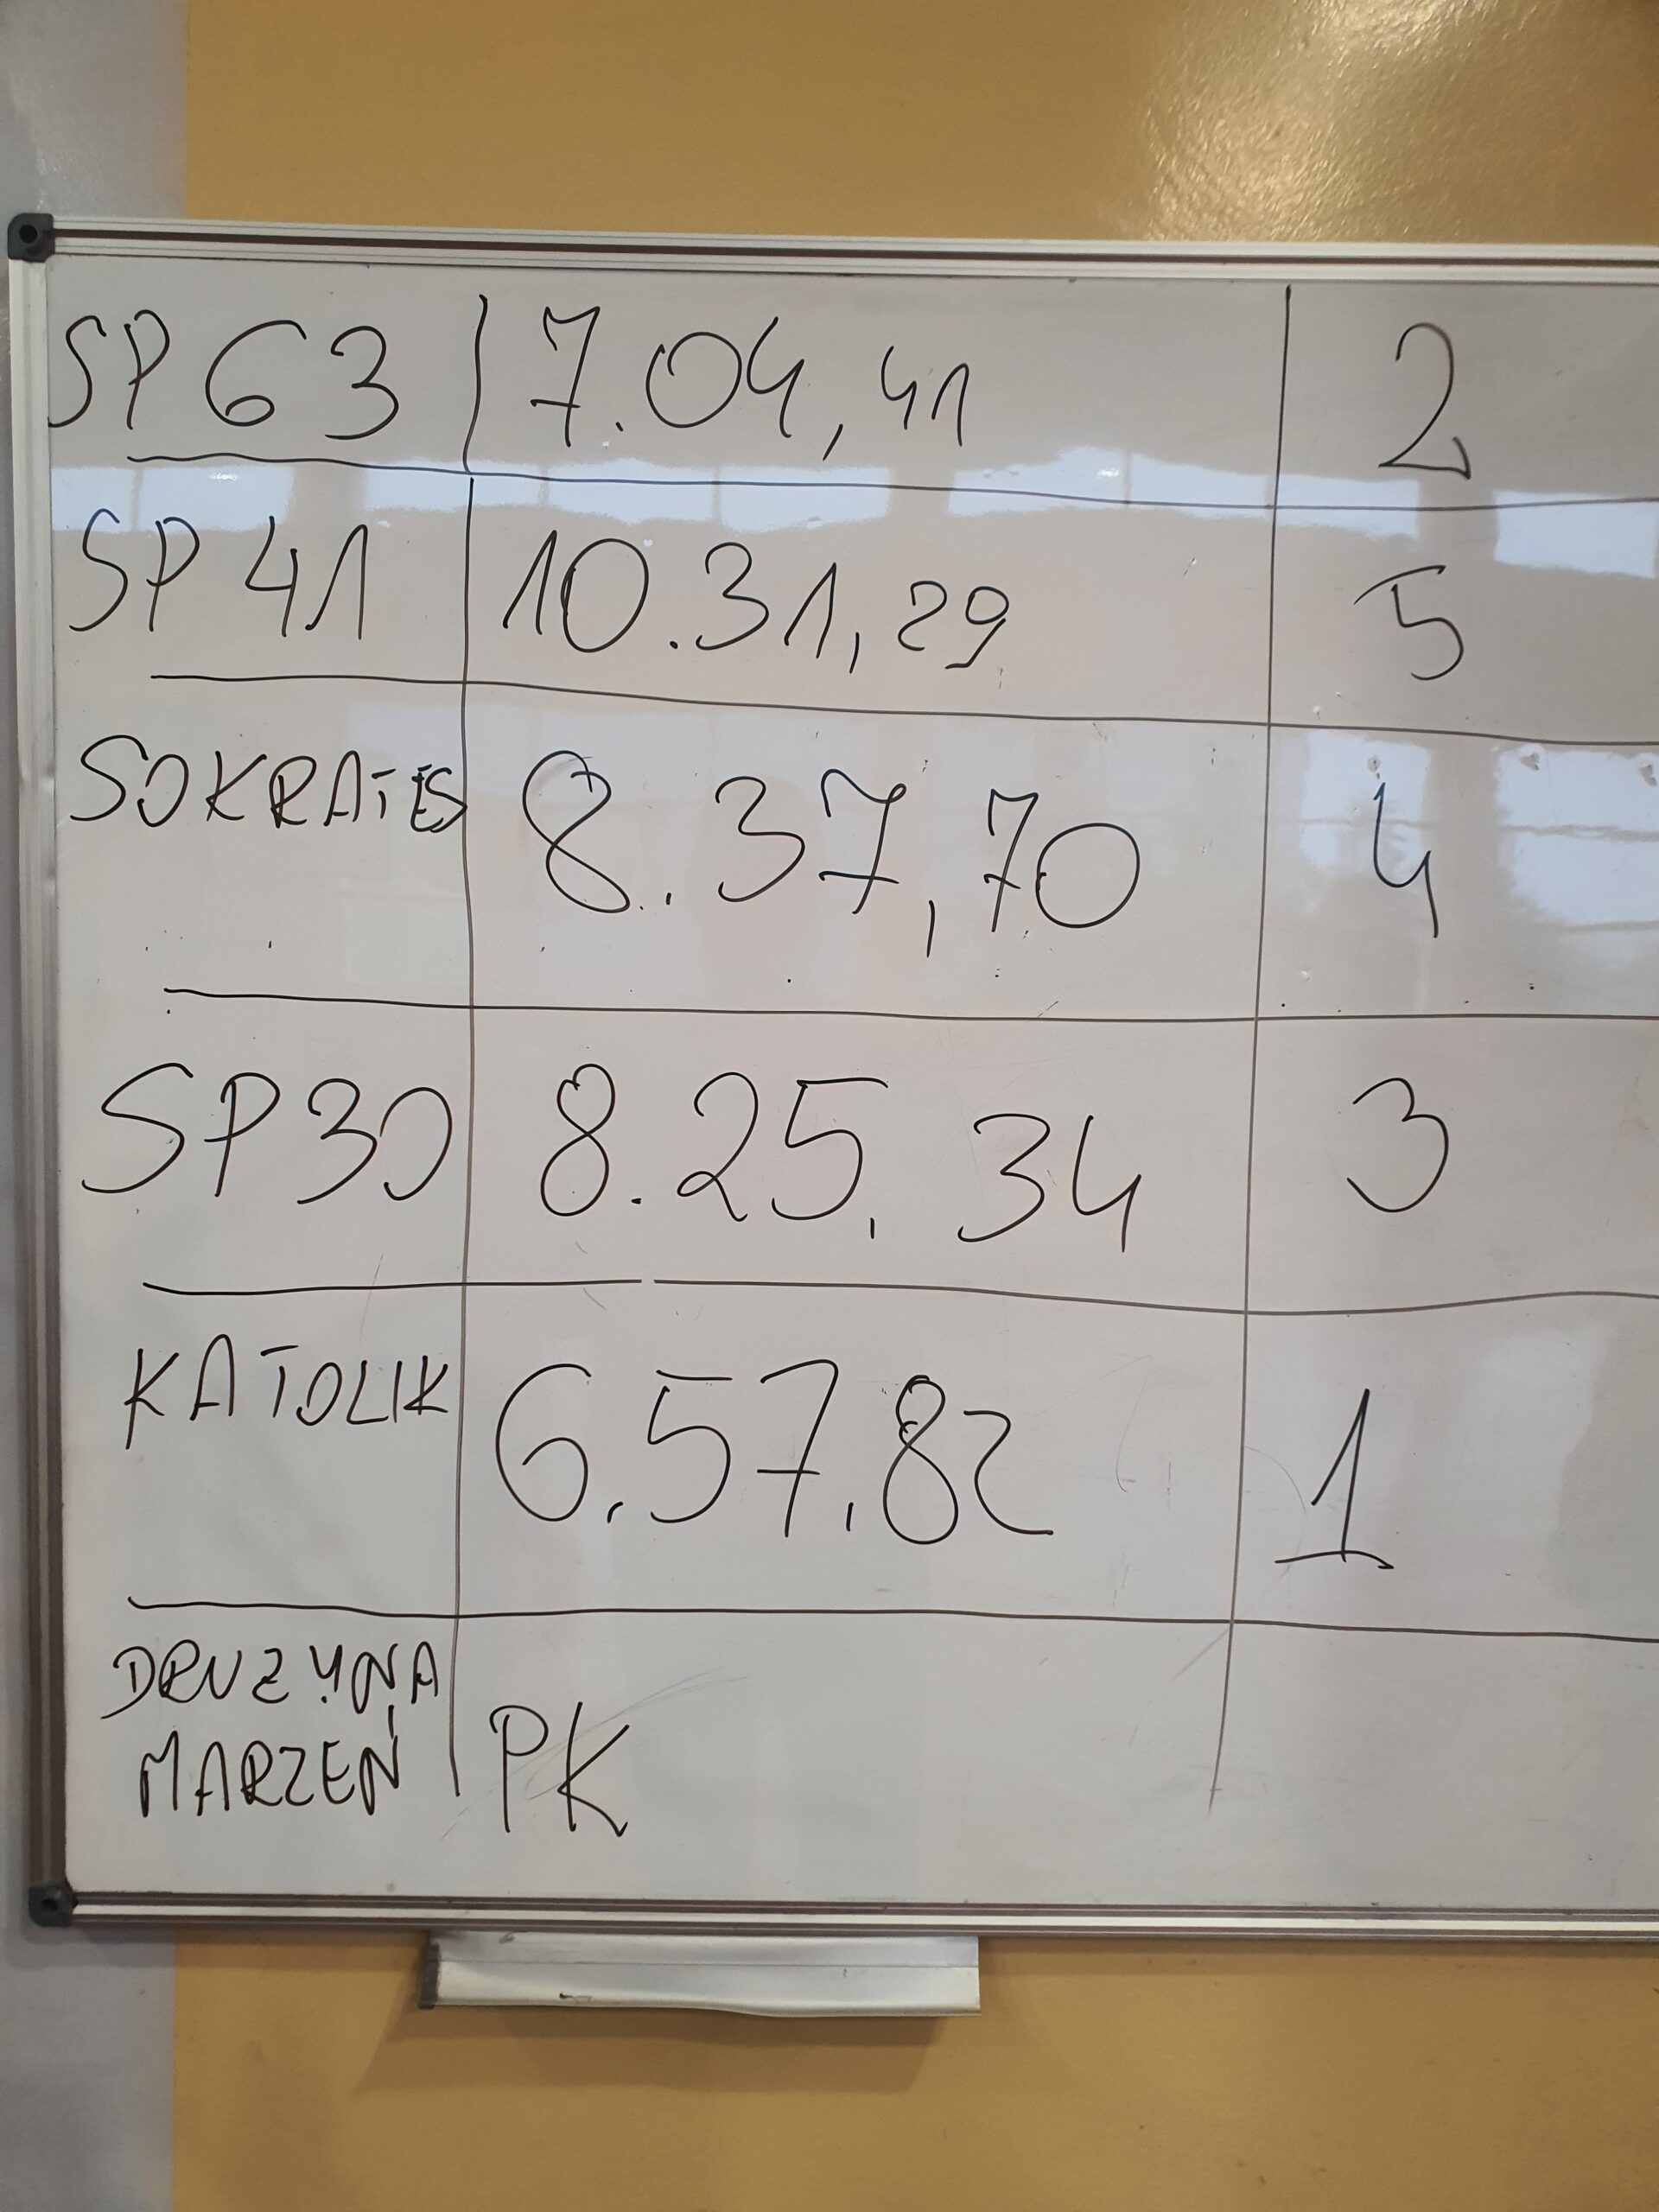 SP 63 7.04,41 2
SP 41 10.31,29 5
SOKRATES 8.37,70 4
SP30 8.25,34 3
KATOLIK 6.57,82 1
DRUZYNA
MARZEŃ PK